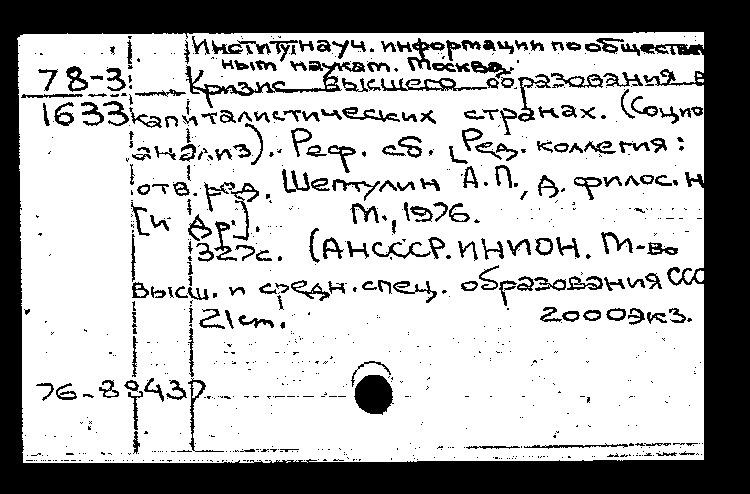 Институт науч. информации по обществен
ным наукам. Москва.
78-3 Кризис высшего образования в
1633 капиталистических странах. (Социо
анализ). Реф. сб. [Ред. коллегия:
отв. ред. Шептулин А.П., д. филос. н
[и др.]. М., 1976.
327с. (АН СССР. ИНИОН. М-во
высш. и средн. спец. образования ССС
21 см. 2000 экз.
76-88437